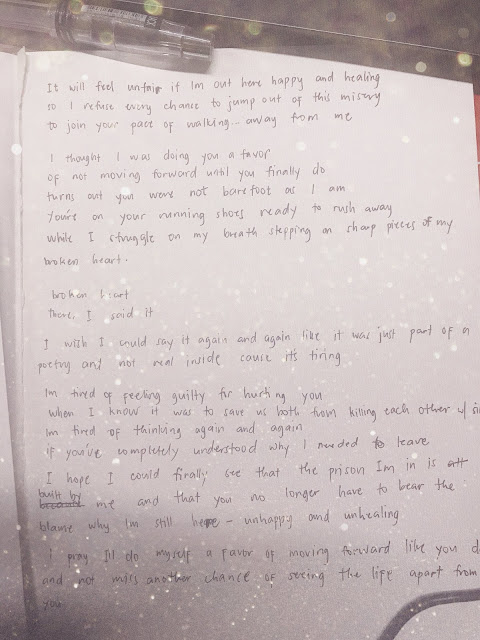 It will feel unfair if Im out here happy and healing
so I refuse every chance to jump out of this misery
to join your pace of walking... away from me
I thought I was doing you a favor
of not moving forward until you finally do
turns out you were not barefoot as I am
You're on your running shoes ready to rush away
while I struggle on my breath stepping on sharp pieces of my
broken heart.
broken heart
there, I said it
I wish I could say it again and again like it was just part of a
poetry and not real inside cause it's tiring
Im tired of feeling guilty for hurting you
when I know it was to save us both from killing each other w/
Im tired of thinking again and again
if you've completely understood why I needed to leave
I hope I could finally see that the prison Im in is
built by me and that you no longer have to bear the
blame why Im still here - unhappy and unhealing
I pray I'll do myself a favor of moving forward like you
and not miss another chance of seeing the life apart from
you